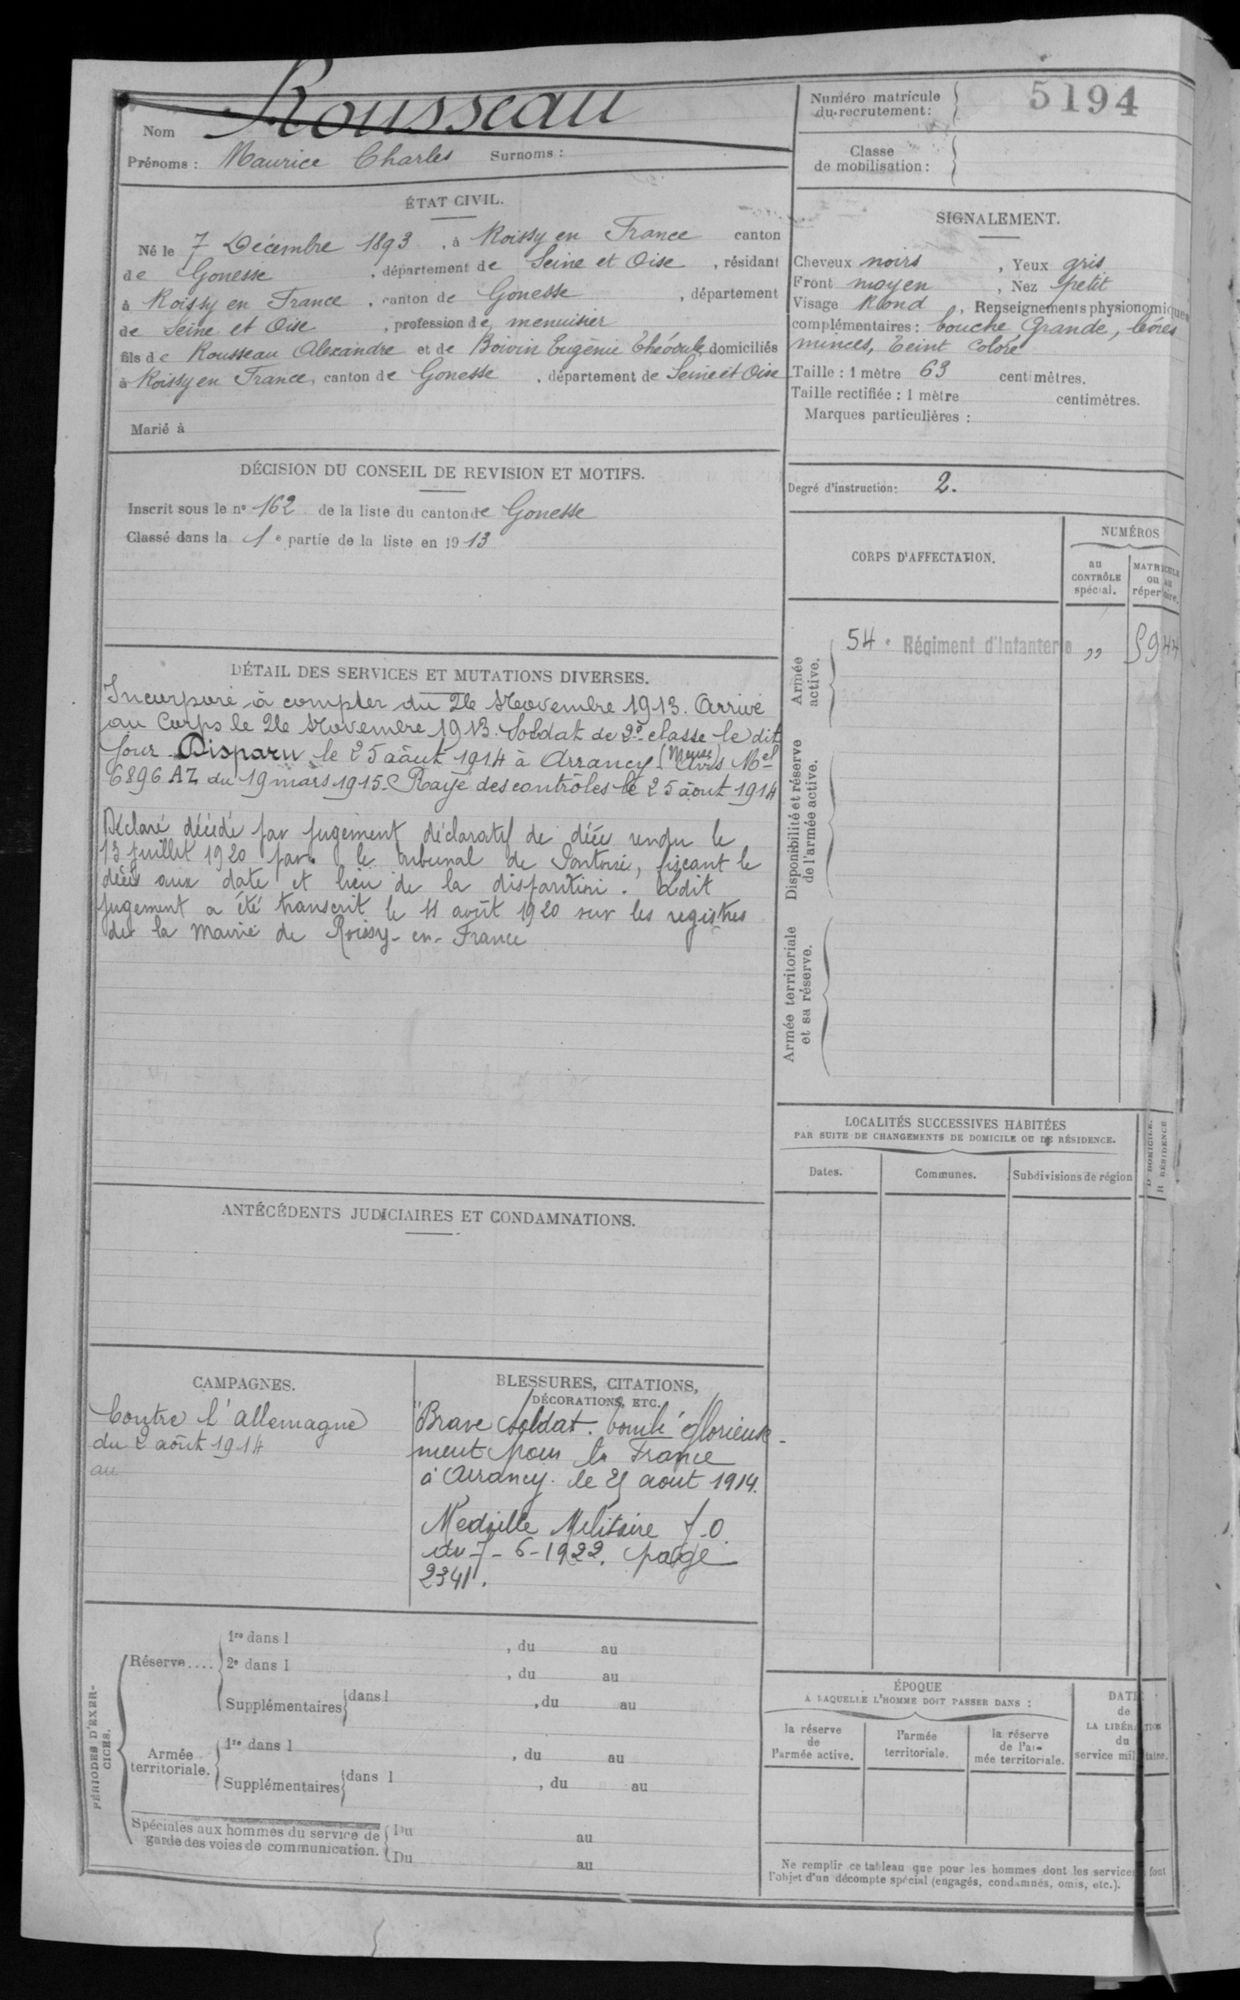 Nom Rousseau
Prénoms : Maurice Charles Surnoms :
Numéro matricule
du recrutement : 5194
Classe
de mobilisation :
ÉTAT CIVIL.
Né le 7 Décembre 1893, à Roissy en France canton
de Gonesse, département de Seine et Oise, résidant
à Roissy en France, canton de Gonesse, département
de Seine et Oise, profession de menuisier
fils de Rousseau Alexandre et de Boivin Eugènie Théodule domiciliés
à Roissy en France, canton de Gonesse, département de Seine et Oise
Marié à
SIGNALEMENT.
Cheveux noirs, Yeux gris
Front moyen, Nez petit
Visage Rond, Renseignements physionomiques
complémentaires : bouche Grande, lèvres
minces, teint coloré
Taille : 1 mètre 63 centimètres.
Taille rectifiée : 1 mètre centimètres.
Marques particulières :
DÉCISION DU CONSEIL DE REVISION ET MOTIFS.
Inscrit sous le n° 162 de la liste du canton de Gonesse
Classé dans la 1e partie de la liste en 1913
Degré d'instruction : 2.
CORPS D'AFFECTATION.
NUMÉROS
au
CONTRÔLE
spécial.
MATRICULE
ou au
répertoire.
Armée
active.
54e Régiment d'Infanterie " 5944
Disponibilité et réserve
de l'armée active.
Armée territoriale
et sa réserve.
DÉTAIL DES SERVICES ET MUTATIONS DIVERSES.
Incorporé à compter du 26 Novembre 1913. Arrivé
au Corps le 26 Novembre 1913. Soldat de 2e classe le dit
Jour. Disparu le 25 août 1914 à Arrancy (Meuse) Avis Mel
6896 AZ du 19 mars 1915. Rayé des contrôles le 25 août 1914
Déclaré décédé par jugement déclaratif de décès rendu le
13 juillet 1920 par le tribunal de Pontoise, fixant le
décès aux date et lieu de la disparition. Ledit
jugement a été transcrit le 11 août 1920 sur les registres
de la mairie de Roissy-en-France
LOCALITÉS SUCCESSIVES HABITÉES
PAR SUITE DE CHANGEMENTS DE DOMICILE OU DE RÉSIDENCE.
Dates.
Communes.
Subdivisions de région
D DOMICILE.
R RÉSIDENCE
ANTÉCÉDENTS JUDICIAIRES ET CONDAMNATIONS.
CAMPAGNES.
Contre l'Allemagne
du 2 août 1914
au
BLESSURES, CITATIONS,
DÉCORATIONS, ETC.
"Brave soldat. Tombé glorieuse-
ment pour la France
à Arrancy. le 25 aout 1914.
Médaille Militaire J.O
du 7-6-1922. page
2341.
PÉRIODES D'EXER-
CICES.
Réserve....
1re dans l , du au
2e dans l , du au
Supplémentaires dans l , du au
Armée
territoriale.
1re dans l , du au
Supplémentaires dans l , du au
Spéciales aux hommes du service de
garde des voies de communication.
Du au
Du au
ÉPOQUE
A LAQUELLE L'HOMME DOIT PASSER DANS :
la réserve
de
l'armée active.
l'armée
territoriale.
la réserve
de l'ar-
mée territoriale.
DATE
de
LA LIBÉRATION
du
service militaire.
Ne remplir ce tableau que pour les hommes dont les services font
l'objet d'un décompte spécial (engagés, condamnés, omis, etc.).